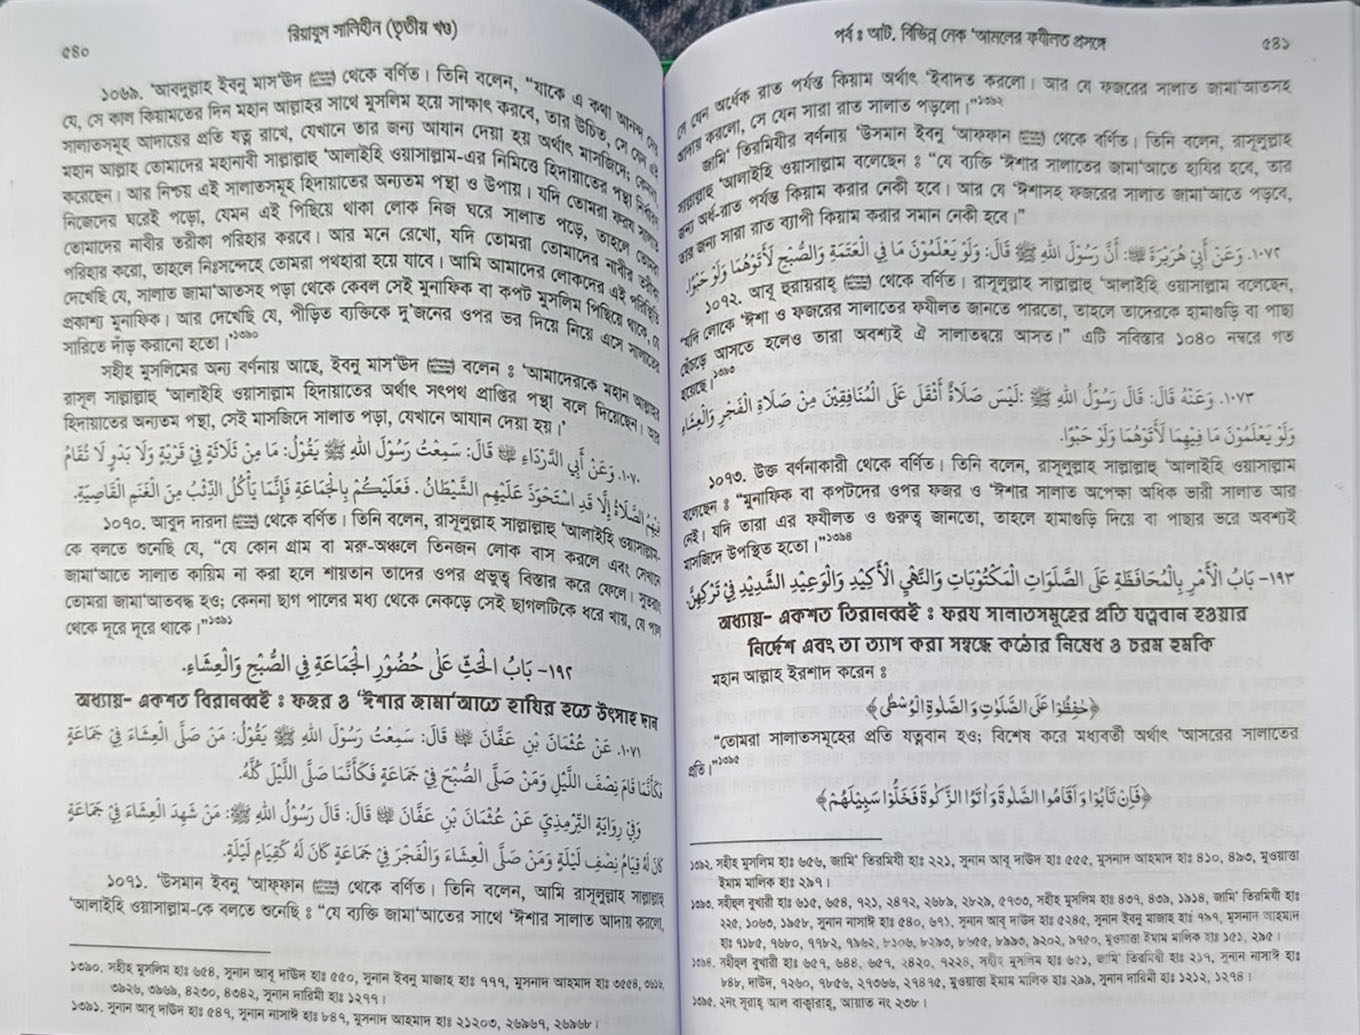 ৫৪০
রিয়াযুস সালিহীন (তৃতীয় খণ্ড)
১০৬৯. ‘আবদুল্লাহ ইবনু মাস‘ঊদ থেকে বর্ণিত। তিনি বলেন, “যাকে এ কথা আনন্দ দেয়
যে, সে কাল কিয়ামতের দিন মহান আল্লাহর সাথে মুসলিম হয়ে সাক্ষাৎ করবে, তার উচিত, সে যেন এই
সালাতসমূহ আদায়ের প্রতি যত্ন রাখে, যেখানে তার জন্য আযান দেয়া হয় অর্থাৎ মাসজিদে; কেননা,
মহান আল্লাহ তোমাদের মহানাবী সাল্লাল্লাহু ‘আলাইহি ওয়াসাল্লাম-এর নিমিত্তে হিদায়াতের পন্থা নির্ধারণ
করেছেন। আর নিশ্চয় এই সালাতসমূহ হিদায়াতের অন্যতম পন্থা ও উপায়। যদি তোমরা ফরয সালাত
নিজেদের ঘরেই পড়ো, যেমন এই পিছিয়ে থাকা লোক নিজ ঘরে সালাত পড়ে, তাহলে তোমরা
তোমাদের নাবীর তরীকা পরিহার করবে। আর মনে রেখো, যদি তোমরা তোমাদের নাবীর তরীকা
পরিহার করো, তাহলে নিঃসন্দেহে তোমরা পথহারা হয়ে যাবে। আমি আমাদের লোকদের এই পরিস্থিতি
দেখেছি যে, সালাত জামা‘আতসহ পড়া থেকে কেবল সেই মুনাফিক বা কপট মুসলিম পিছিয়ে থাকে, যে
প্রকাশ্য মুনাফিক। আর দেখেছি যে, পীড়িত ব্যক্তিকে দু’জনের ওপর ভর দিয়ে নিয়ে এসে সালাতের
সারিতে দাঁড় করানো হতো।”১৩৯০
সহীহ মুসলিমের অন্য বর্ণনায় আছে, ইবনু মাস‘ঊদ বলেন : ‘আমাদেরকে মহান আল্লাহর
রাসূল সাল্লাল্লাহু ‘আলাইহি ওয়াসাল্লাম হিদায়াতের অর্থাৎ সৎপথ প্রাপ্তির পন্থা বলে দিয়েছেন। আর
হিদায়াতের অন্যতম পন্থা, সেই মাসজিদে সালাত পড়া, যেখানে আযান দেয়া হয়।’
١٠٧٠. وَعَنْ أَبِي الدَّرْدَاءِ ﷺ قَالَ: سَمِعْتُ رَسُوْلَ اللهِ ﷺ يَقُوْلُ: مَا مِنْ ثَلَاثَةٍ فِيْ قَرْيَةٍ وَلَا بَدْوٍ لَا تُقَامُ
فِيْهِمُ الصَّلَاةُ إِلَّا قَدِ اسْتَحْوَذَ عَلَيْهِمِ الشَّيْطَانُ . فَعَلَيْكُمْ بِالْجَمَاعَةِ فَإِنَّمَا يَأْكُلُ الذِّئْبُ مِنَ الْغَنَمِ الْقَاصِيَةَ.
১০৭০. আবুদ দারদা থেকে বর্ণিত। তিনি বলেন, রাসূলুল্লাহ সাল্লাল্লাহু ‘আলাইহি ওয়াসাল্লাম-
কে বলতে শুনেছি যে, “যে কোন গ্রাম বা মরু-অঞ্চলে তিনজন লোক বাস করলে এবং সেখানে
জামা‘আতে সালাত কায়িম না করা হলে শায়তান তাদের ওপর প্রভুত্ব বিস্তার করে ফেলে। সুতরাং
তোমরা জামা‘আতবদ্ধ হও; কেননা ছাগ পালের মধ্য থেকে নেকড়ে সেই ছাগলটিকে ধরে খায়, যে পাল
থেকে দূরে দূরে থাকে।”১৩৯১
١٩٢- بَابُ الْحَثِّ عَلٰى حُضُوْرِ الْجَمَاعَةِ فِي الصُّبْحِ وَالْعِشَاءِ.
অধ্যায়- একশত বিরানব্বই : ফজর ও ‘ঈশার জামা‘আতে হাযির হতে উৎসাহ দান
١٠٧١. عَنْ عُثْمَانَ بْنِ عَفَّانَ ﷺ قَالَ: سَمِعْتُ رَسُوْلَ اللهِ ﷺ يَقُوْلُ: مَنْ صَلَّى الْعِشَاءَ فِيْ جَمَاعَةٍ
فَكَأَنَّمَا قَامَ نِصْفَ اللَّيْلِ وَمَنْ صَلَّى الصُّبْحَ فِيْ جَمَاعَةٍ فَكَأَنَّمَا صَلَّى اللَّيْلَ كُلَّهُ.
وَفِيْ رِوَايَةِ التِّرْمِذِيِّ عَنْ عُثْمَانَ بْنِ عَفَّانَ ﷺ قَالَ: قَالَ رَسُوْلُ اللهِ ﷺ: مَنْ شَهِدَ الْعِشَاءَ فِيْ جَمَاعَةٍ
كَانَ لَهُ قِيَامُ نِصْفِ لَيْلَةٍ وَمَنْ صَلَّى الْعِشَاءَ وَالْفَجْرَ فِيْ جَمَاعَةٍ كَانَ لَهُ كَقِيَامِ لَيْلَةٍ.
১০৭১. ‘উসমান ইবনু ‘আফ্ফান থেকে বর্ণিত। তিনি বলেন, আমি রাসূলুল্লাহ সাল্লাল্লাহু
‘আলাইহি ওয়াসাল্লাম-কে বলতে শুনেছি : “যে ব্যক্তি জামা‘আতের সাথে ‘ঈশার সালাত আদায় করলো,
১৩৯০. সহীহ মুসলিম হাঃ ৬৫৪, সুনান আবূ দাউদ হাঃ ৫৫০, সুনান ইবনু মাজাহ হাঃ ৭৭৭, মুসনাদ আহমাদ হাঃ ৩৫৫৪, ৩৬১৬,
৩৯২৬, ৩৯৬৯, ৪২৩০, ৪৩৪২, সুনান দারিমী হাঃ ১২৭৭।
১৩৯১. সুনান আবূ দাউদ হাঃ ৫৪৭, সুনান নাসাঈ হাঃ ৮৪৭, মুসনাদ আহমাদ হাঃ ২১২০৩, ২৬৯৬৭, ২৬৯৬৮।
পর্ব : আট. বিভিন্ন নেক ‘আমলের ফযীলত প্রসঙ্গে
৫৪১
সে যেন অর্ধেক রাত পর্যন্ত কিয়াম অর্থাৎ ‘ইবাদত করলো। আর যে ফজরের সালাত জামা‘আতসহ
আদায় করলো, সে যেন সারা রাত সালাত পড়লো।”১৩৯২
জামি‘ তিরমিযীর বর্ণনায় ‘উসমান ইবনু ‘আফ্ফান থেকে বর্ণিত। তিনি বলেন, রাসূলুল্লাহ
সাল্লাল্লাহু ‘আলাইহি ওয়াসাল্লাম বলেছেন : “যে ব্যক্তি ‘ঈশার সালাতের জামা‘আতে হাযির হবে, তার
জন্য অর্ধ-রাত পর্যন্ত কিয়াম করার নেকী হবে। আর যে ‘ঈশাসহ ফজরের সালাত জামা‘আতে পড়বে,
তার জন্য সারা রাত ব্যাপী কিয়াম করার সমান নেকী হবে।”
١٠٧٢. وَعَنْ أَبِيْ هُرَيْرَةَ ﷺ: أَنَّ رَسُوْلَ اللهِ ﷺ قَالَ: وَلَوْ يَعْلَمُوْنَ مَا فِي الْعَتَمَةِ وَالصُّبْحِ لَأَتَوْهُمَا وَلَوْ حَبْوًا.
১০৭২. আবূ হুরায়রাহ্ থেকে বর্ণিত। রাসূলুল্লাহ সাল্লাল্লাহু ‘আলাইহি ওয়াসাল্লাম বলেছেন,
“যদি লোকে ‘ঈশা ও ফজরের সালাতের ফযীলত জানতে পারতো, তাহলে তাদেরকে হামাগুড়ি বা পাছা
ছেঁচড়ে আসতে হলেও তারা অবশ্যই ঐ সালাতদ্বয়ে আসত।” এটি সবিস্তার ১০৪০ নম্বরে গত
হয়েছে।১৩৯৩
١٠٧٣. وَعَنْهُ قَالَ: قَالَ رَسُوْلُ اللهِ ﷺ :لَيْسَ صَلَاةٌ أَثْقَلَ عَلَى الْمُنَافِقِيْنَ مِنْ صَلَاةِ الْفَجْرِ وَالْعِشَاءِ
وَلَوْ يَعْلَمُوْنَ مَا فِيْهِمَا لَأَتَوْهُمَا وَلَوْ حَبْوًا.
১০৭৩. উক্ত বর্ণনাকারী থেকে বর্ণিত। তিনি বলেন, রাসূলুল্লাহ সাল্লাল্লাহু ‘আলাইহি ওয়াসাল্লাম
বলেছেন : “মুনাফিক বা কপটদের ওপর ফজর ও ‘ঈশার সালাত অপেক্ষা অধিক ভারী সালাত আর
নেই। যদি তারা এর ফযীলত ও গুরুত্ব জানতো, তাহলে হামাগুড়ি দিয়ে বা পাছার ভরে অবশ্যই
মাসজিদে উপস্থিত হতো।”১৩৯৪
١٩٣- بَابُ الْأَمْرِ بِالْمُحَافَظَةِ عَلَى الصَّلَوَاتِ الْمَكْتُوْبَاتِ وَالنَّهْيِ الْأَكِيْدِ وَالْوَعِيْدِ الشَّدِيْدِ فِيْ تَرْكِهِنَّ
অধ্যায়- একশত তিরানব্বই : ফরয সালাতসমূহের প্রতি যত্নবান হওয়ার
নির্দেশ এবং তা ত্যাগ করা সম্বন্ধে কঠোর নিষেধ ও চরম হুমকি
মহান আল্লাহ ইরশাদ করেন :
﴿حٰفِظُوْا عَلَى الصَّلَوٰتِ وَالصَّلٰوةِ الْوُسْطٰى﴾
“তোমরা সালাতসমূহের প্রতি যত্নবান হও; বিশেষ করে মধ্যবর্তী অর্থাৎ ‘আসরের সালাতের
প্রতি।”১৩৯৫
﴿فَإِنْ تَابُوْا وَأَقَامُوا الصَّلٰوةَ وَاٰتَوُا الزَّكٰوةَ فَخَلُّوْا سَبِيْلَهُمْ﴾
১৩৯২. সহীহ মুসলিম হাঃ ৬৫৬, জামি‘ তিরমিযী হাঃ ২২১, সুনান আবূ দাউদ হাঃ ৫৫৫, মুসনাদ আহমাদ হাঃ ৪১০, ৪৯৩, মুওয়াত্তা
ইমাম মালিক হাঃ ২৯৭।
১৩৯৩. সহীহুল বুখারী হাঃ ৬১৫, ৬৫৪, ৭২১, ২৪৭২, ২৬৮৯, ২৮২৯, ৫৭৩৩, সহীহ মুসলিম হাঃ ৪৩৭, ৪৩৯, ১৯১৪, জামি‘ তিরমিযী হাঃ
২২৫, ১০৬৩, ১৯৫৮, সুনান নাসাঈ হাঃ ৫৪০, ৬৭১, সুনান আবূ দাউদ হাঃ ৫২৪৫, সুনান ইবনু মাজাহ হাঃ ৭৯৭, মুসনাদ আহমাদ
হাঃ ৭১৮৫, ৭৬৮০, ৭৭৮২, ৭৯৬২, ৮১০৬, ৮২৯৩, ৮৬৫৫, ৮৯৯৩, ৯২০২, ৯৭৫০, মুওয়াত্তা ইমাম মালিক হাঃ ১৫১, ২৯৫।
১৩৯৪. সহীহুল বুখারী হাঃ ৬৫৭, ৬৪৪, ৬৫৭, ২৪২০, ৭২২৪, সহীহ মুসলিম হাঃ ৬৫১, জামি‘ তিরমিযী হাঃ ২১৭, সুনান নাসাঈ হাঃ
৮৪৮, দাউদ, ৭২৬০, ৭৮৫৬, ২৭৩৬৬, ২৭৪৭৫, মুওয়াত্তা ইমাম মালিক হাঃ ২৯৯, সুনান দারিমী হাঃ ১২১২, ১২৭৪।
১৩৯৫. ২নং সূরাহ্ আল বাক্বারাহ্, আয়াত নং ২৩৮।